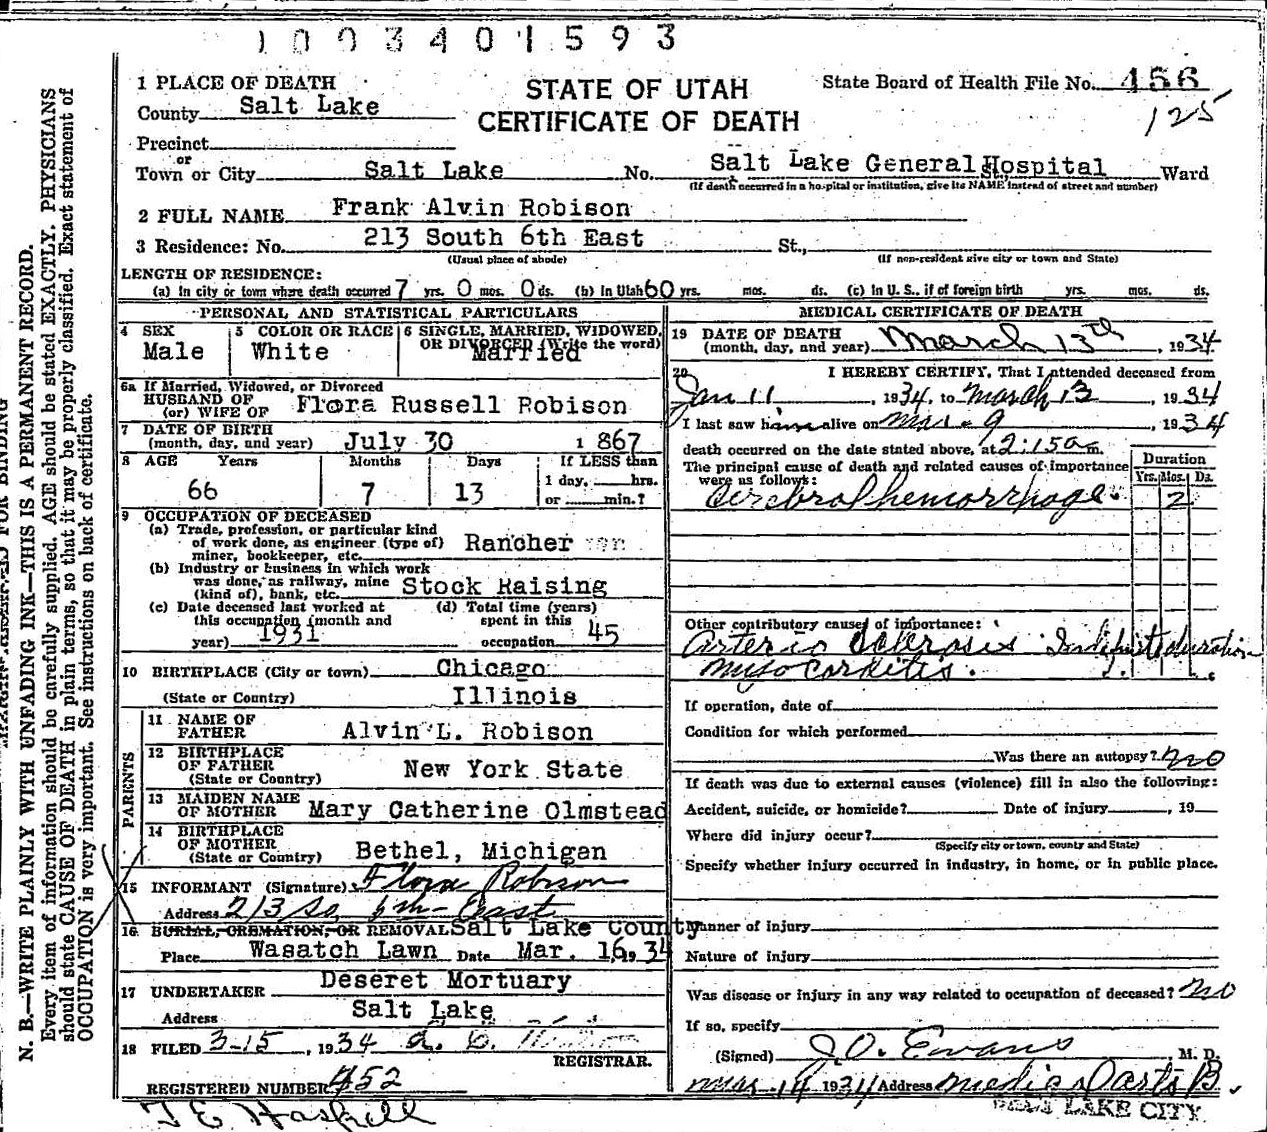 1003401593
1 PLACE OF DEATH
County Salt Lake
Precinct
or
Town or City Salt Lake No. Salt Lake General Hospital Ward
(If death occurred in a hospital or institution, give its NAME instead of street and number)
STATE OF UTAH
CERTIFICATE OF DEATH
State Board of Health File No. 456
125
2 FULL NAME Frank Alvin Robison
3 Residence: No. 213 South 6th East St.,
(Usual place of abode) (If non-resident give city or town and State)
LENGTH OF RESIDENCE:
(a) In city or town where death occurred 7 yrs. 0 mos. 0 ds. (b) In Utah 60 yrs. mos. ds. (c) In U. S., if of foreign birth yrs. mos. ds.
PERSONAL AND STATISTICAL PARTICULARS
4 SEX
Male
5 COLOR OR RACE
White
6 SINGLE, MARRIED, WIDOWED,
OR DIVORCED (Write the word)
Married
6a If Married, Widowed, or Divorced
HUSBAND OF
(or) WIFE OF Flora Russell Robison
7 DATE OF BIRTH
(month, day, and year) July 30 1 867
8 AGE Years Months Days If LESS than
66 7 13 1 day, hrs.
or min.?
9 OCCUPATION OF DECEASED
(a) Trade, profession, or particular kind
of work done, as engineer (type of)
miner, bookkeeper, etc. Rancher
(b) Industry or business in which work
was done, as railway, mine
(kind of), bank, etc. Stock Raising
(c) Date deceased last worked at
this occupation (month and
year) 1931
(d) Total time (years)
spent in this
occupation 45
10 BIRTHPLACE (City or town) Chicago
(State or Country) Illinois
PARENTS
11 NAME OF
FATHER Alvin L. Robison
12 BIRTHPLACE
OF FATHER
(State or Country) New York State
13 MAIDEN NAME
OF MOTHER Mary Catherine Olmstead
14 BIRTHPLACE
OF MOTHER
(State or Country) Bethel, Michigan
15 INFORMANT (Signature) Flora Robison
Address 213 So. 6th East
16 BURIAL, CREMATION, OR REMOVAL Salt Lake County
Place Wasatch Lawn Date Mar. 16, 34
17 UNDERTAKER Deseret Mortuary
Address Salt Lake
18 FILED 3-15, 1934
REGISTRAR.
REGISTERED NUMBER 452
T E Haskell
MEDICAL CERTIFICATE OF DEATH
19 DATE OF DEATH
(month, day, and year) March 13th, 1934
20 I HEREBY CERTIFY, That I attended deceased from
Jan 11, 1934, to March 13, 1934
I last saw him alive on Mar. 9, 1934
death occurred on the date stated above, at 2:15 a m.
The principal cause of death and related causes of importance
were as follows:
Duration
Yrs. Mos. Ds.
Cerebral hemorrhage 2
Other contributory causes of importance:
Arterio Sclerosis Indefinite duration
Myocarditis.
If operation, date of
Condition for which performed
Was there an autopsy? no
If death was due to external causes (violence) fill in also the following:
Accident, suicide, or homicide? Date of injury, 19
Where did injury occur?
(Specify city or town, county and State)
Specify whether injury occurred in industry, in home, or in public place.
Manner of injury
Nature of injury
Was disease or injury in any way related to occupation of deceased? no
If so, specify
(Signed) J.O. Evans, M. D.
Mar 14 1934 Address Medical Arts B.
SALT LAKE CITY.
N. B.—WRITE PLAINLY WITH UNFADING INK—THIS IS A PERMANENT RECORD.
Every item of information should be carefully supplied. AGE should be stated EXACTLY. PHYSICIANS
should state CAUSE OF DEATH in plain terms, so that it may be properly classified. Exact statement of
OCCUPATION is very important. See instructions on back of certificate.